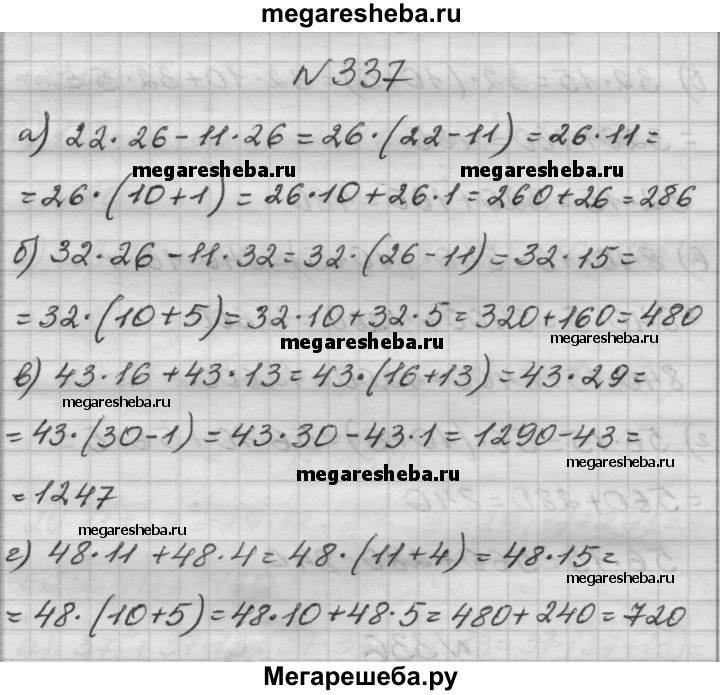 megaresheba.ru
№337
а) 22·26-11·26=26·(22-11)=26·11=
megaresheba.ru megaresheba.ru
=26·(10+1)=26·10+26·1=260+26=286
б) 32·26-11·32=32·(26-11)=32·15=
=32·(10+5)=32·10+32·5=320+160=480
megaresheba.ru megaresheba.ru
в) 43·16+43·13=43·(16+13)=43·29=
megaresheba.ru
=43·(30-1)=43·30-43·1=1290-43=
megaresheba.ru
megaresheba.ru
=1247
megaresheba.ru
г) 48·11+48·4=48·(11+4)=48·15=
megaresheba.ru
=48·(10+5)=48·10+48·5=480+240=720
Мегарешеба.ру